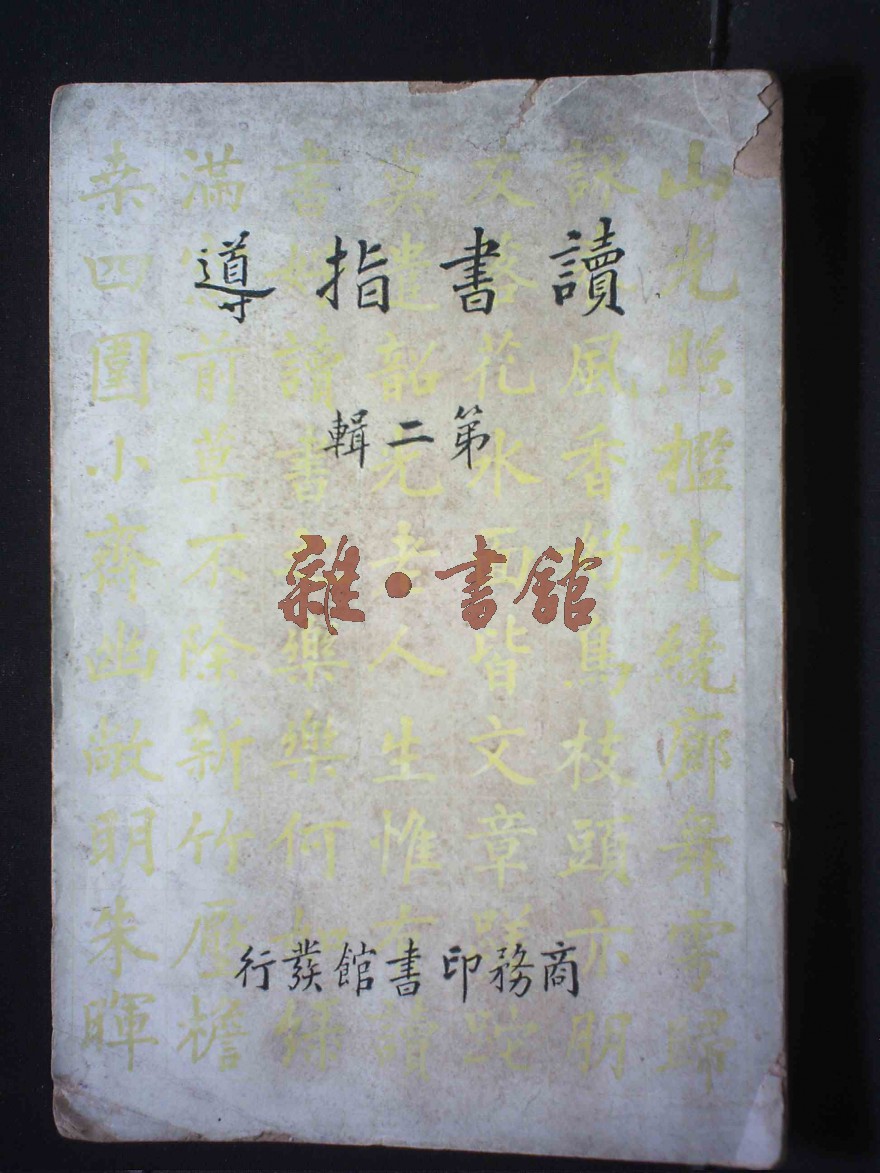 讀書指導
第二輯
雜·書館
商務印書館發行
山光照檻水繞廊舞雩歸
詠春風香好鳥枝頭亦朋
友落花水面皆文章蹉跎
莫遣韶光老人生惟有讀
書好讀書之樂樂何如綠
滿窗前草不除新竹壓檐
桑四圍小齋幽敞明朱暉